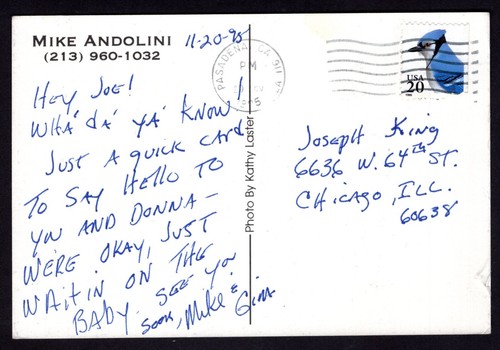 MIKE ANDOLINI
(213) 960-1032
11-20-95
HEY JOE!
WHA' DA' YA' KNOW!
JUST A QUICK CARD
TO SAY HELLO TO
YOU AND DONNA-
WERE OKAY, JUST
WAITIN ON THE
BABY. SEE YOU
SOON, MIKE & Gina
Photo By Kathy Laster
PASADENA, CA
PM
USA
20
Joseph King
6636 W. 64TH ST.
CHICAGO, ILL.
60638